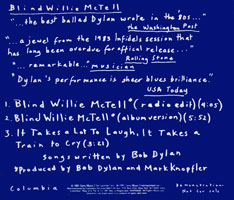 Blind Willie McTell
"...the best ballad Dylan wrote in the 80s..."
the Washington Post
"...a jewel from the 1983 Infidels session that
has long been overdue for offical release..."
Rolling Stone
"...remarkable..." musician
"Dylan's performance is sheer blues briliance."
USA Today
1. Blind Willie McTell* (radio edit) (4:05)
2. Blind Willie McTell* (album version) (5:52)
3. It Takes a Lot To Laugh, It Takes a
Train to Cry (3:21)
Songs written by Bob Dylan
*Produced by Bob Dylan and Mark Knopfler
Columbia
Demonstration-
Not for sale